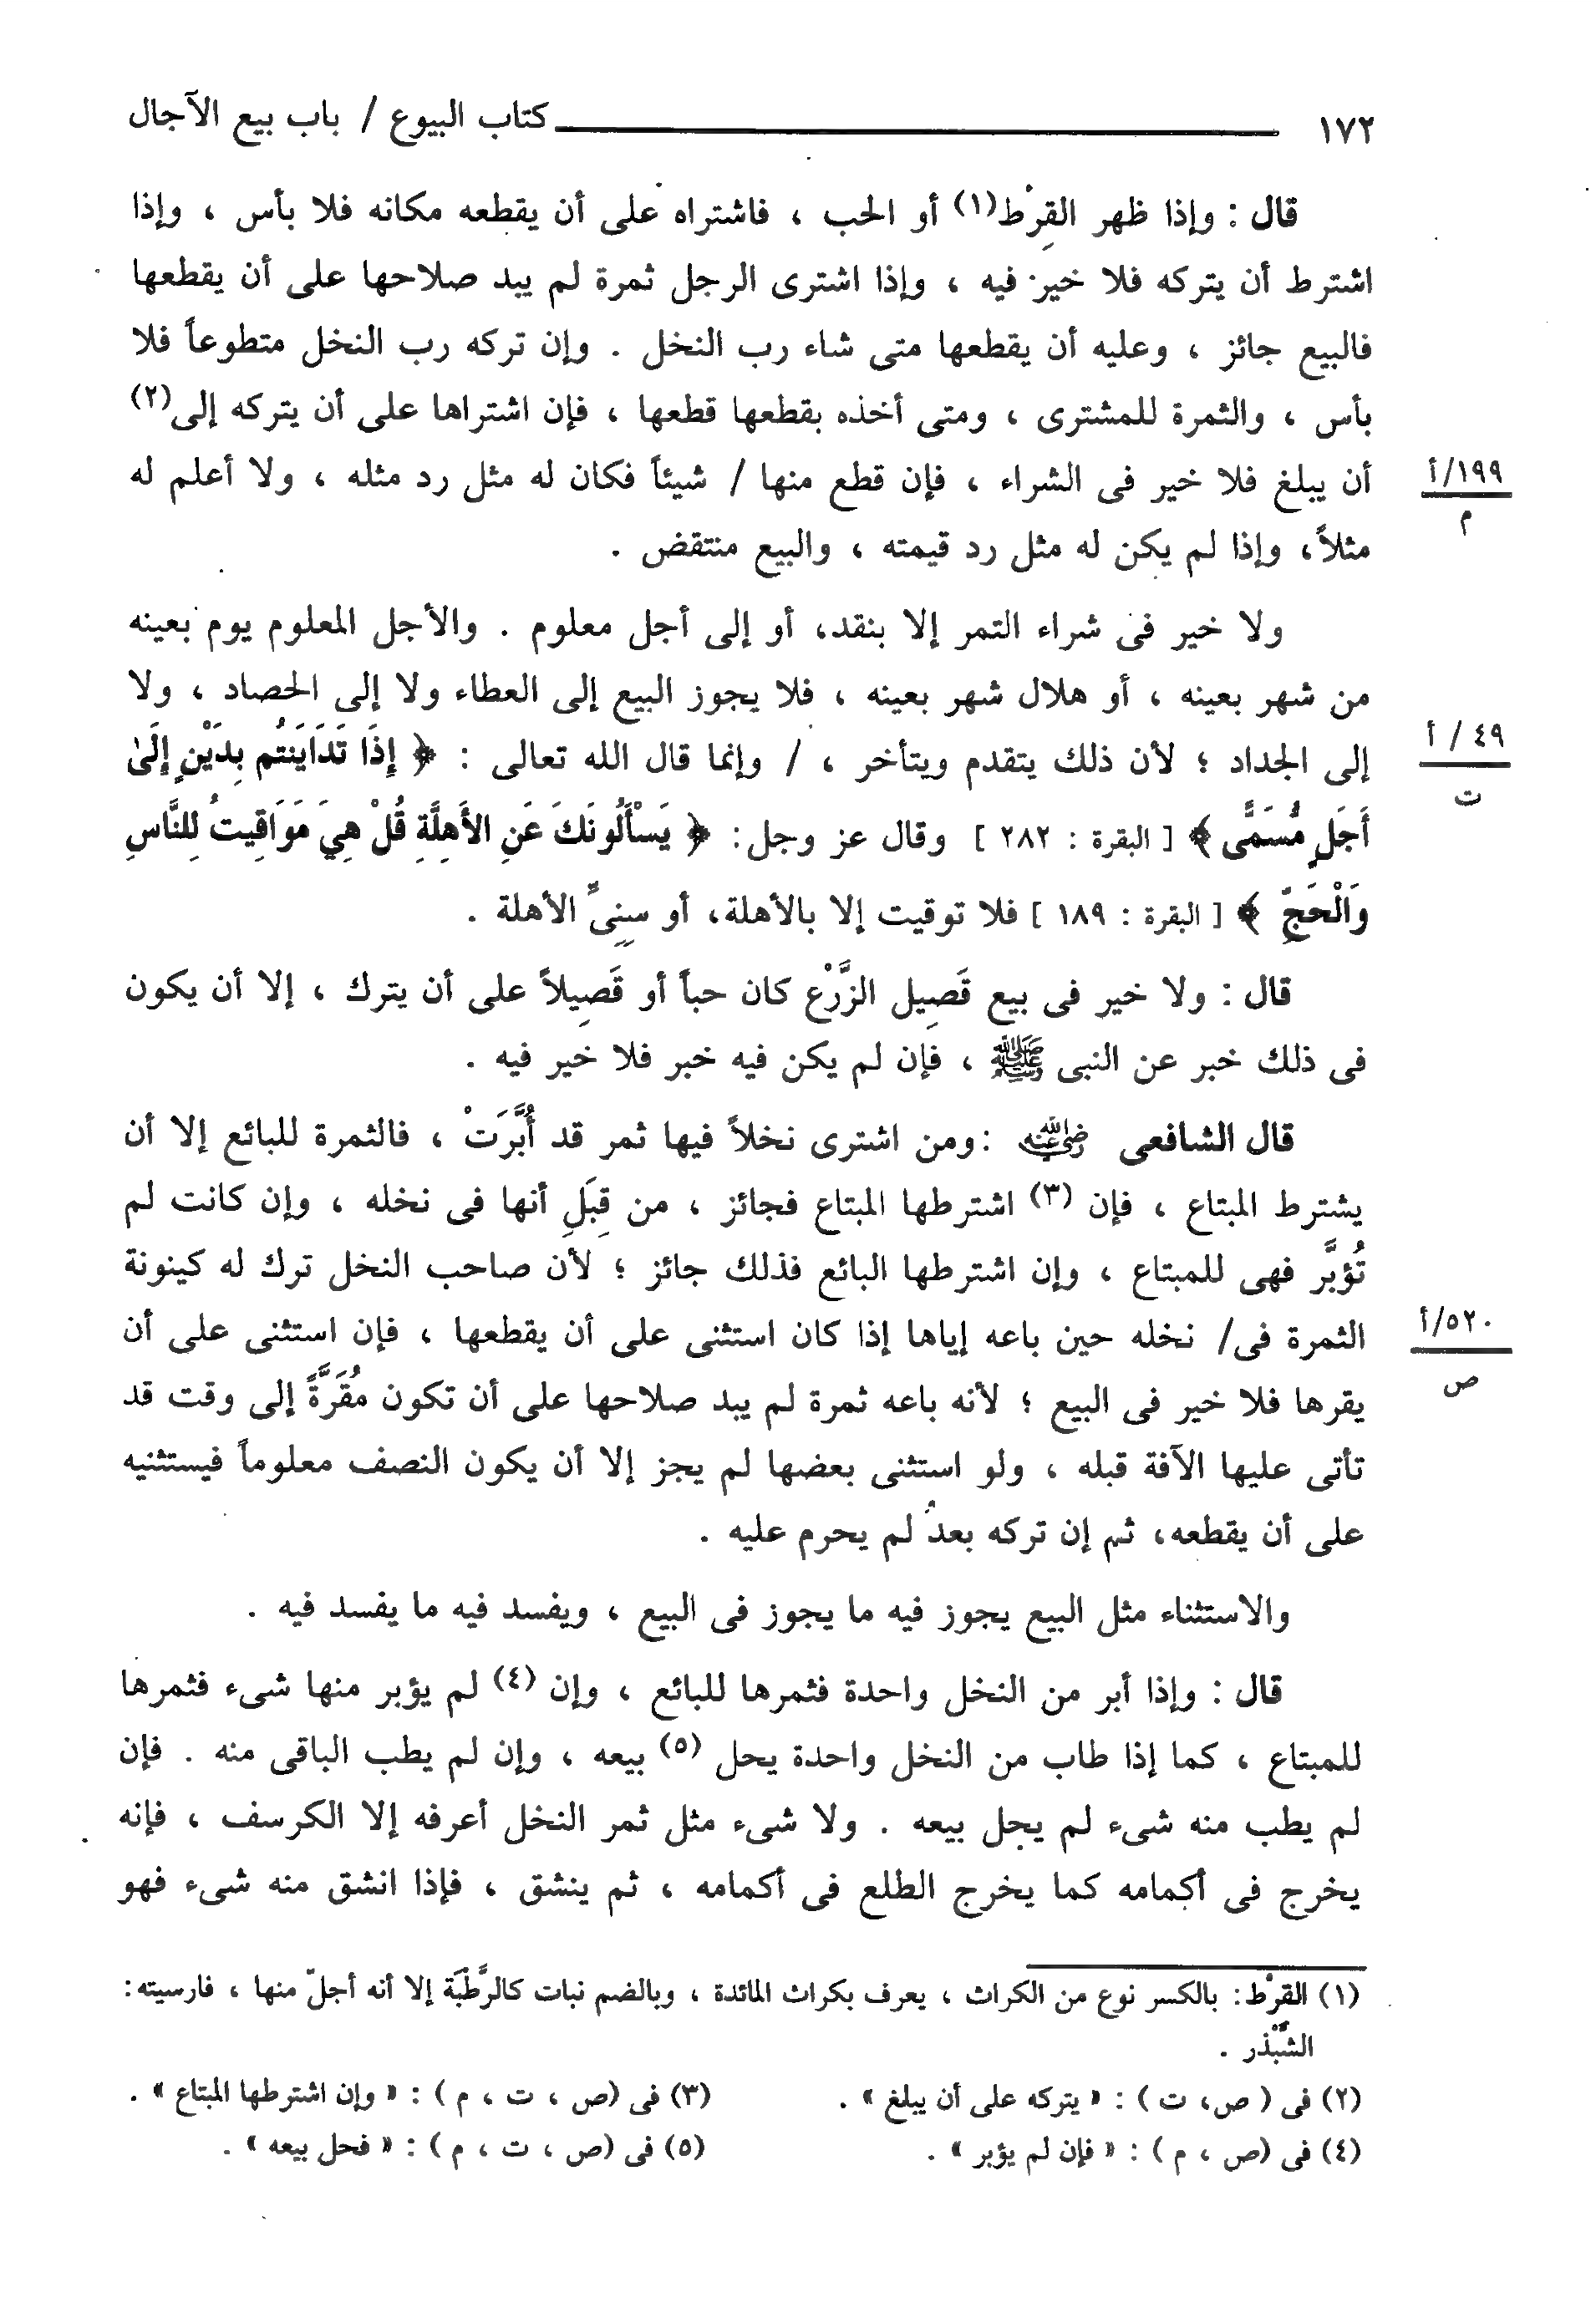 ١٧٢ كتاب البيوع / باب بيع الآجال
قال : وإذا ظهر القِرْط(١) أو الحب ، فاشتراه على أن يقطعه مكانه فلا بأس ، وإذا
اشترط أن يتركه فلا خير فيه ، وإذا اشترى الرجل ثمرة لم يبد صلاحها على أن يقطعها
فالبيع جائز ، وعليه أن يقطعها متى شاء رب النخل . وإن تركه رب النخل متطوعاً فلا
بأس ، والثمرة للمشترى ، ومتى أخذه بقطعها قطعها ، فإن اشتراها على أن يتركه إلى(٢)
أن يبلغ فلا خير فى الشراء ، فإن قطع منها / شيئاً فكان له مثل رد مثله ، ولا أعلم له
١٩٩/أ
م
مثلاً، وإذا لم يكن له مثل رد قيمته ، والبيع منتقض .
ولا خير فى شراء التمر إلا بنقد، أو إلى أجل معلوم . والأجل المعلوم يوم بعينه
من شهر بعينه ، أو هلال شهر بعينه ، فلا يجوز البيع إلى العطاء ولا إلى الحصاد ، ولا
إلى الجداد ؛ لأن ذلك يتقدم ويتأخر ، / وإنما قال الله تعالى : ﴿ إِذَا تَدَايَنتُم بِدَيْنٍ إِلَىٰ
٤٩ / أ
ت
أَجَلٍ مُّسَمًّى ﴾ [ البقرة : ٢٨٢ ] وقال عز وجل: ﴿ يَسْأَلُونَكَ عَنِ الأَهِلَّةِ قُلْ هِيَ مَوَاقِيتُ لِلنَّاسِ
وَالْحَجِّ ﴾ [ البقرة : ١٨٩ ] فلا توقيت إلا بالأهلة، أو سِنِىِّ الأهلة .
قال : ولا خير فى بيع قَصِيل الزَّرْع كان حباً أو قَصِيلاً على أن يترك ، إلا أن يكون
فى ذلك خبر عن النبى ﷺ ، فإن لم يكن فيه خبر فلا خير فيه .
قال الشافعى رضي الله عنه :ومن اشترى نخلاً فيها ثمر قد أُبَّرَتْ ، فالثمرة للبائع إلا أن
يشترط المبتاع ، فإن (٣) اشترطها المبتاع فجائز ، من قِبَلِ أنها فى نخله ، وإن كانت لم
تُؤبَّر فهى للمبتاع ، وإن اشترطها البائع فذلك جائز ؛ لأن صاحب النخل ترك له كينونة
الثمرة فى/ نخله حين باعه إياها إذا كان استثنى على أن يقطعها ، فإن استثنى على أن
٥٢٠/أ
ص
يقرها فلا خير فى البيع ؛ لأنه باعه ثمرة لم يبد صلاحها على أن تكون مُقَرَّةً إلى وقت قد
تأتى عليها الآفة قبله ، ولو استثنى بعضها لم يجز إلا أن يكون النصف معلوماً فيستثنيه
على أن يقطعه، ثم إن تركه بعدُ لم يحرم عليه .
والاستثناء مثل البيع يجوز فيه ما يجوز فى البيع ، ويفسد فيه ما يفسد فيه .
قال : وإذا أبر من النخل واحدة فثمرها للبائع ، وإن (٤) لم يؤبر منها شىء فثمرها
للمبتاع ، كما إذا طاب من النخل واحدة يحل (٥) بيعه ، وإن لم يطب الباقى منه . فإن
لم يطب منه شىء لم يحل بيعه . ولا شىء مثل ثمر النخل أعرفه إلا الكرسف ، فإنه
يخرج فى أكمامه كما يخرج الطلع فى أكمامه ، ثم ينشق ، فإذا انشق منه شىء فهو
(١) القِرْط: بالكسر نوع من الكراث ، يعرف بكراث المائدة ، وبالضم نبات كالرَّطْبَة إلا أنه أجلّ منها ، فارسيته:
الشَّبْذَر .
(٢) فى ( ص، ت ) : « يتركه على أن يبلغ » . (٣) فى (ص ، ت ، م ) : « وإن اشترطها المبتاع » .
(٤) فى (ص ، م ) : « فإن لم يؤبر » . (٥) فى (ص ، ت ، م ) : « فحل بيعه » .